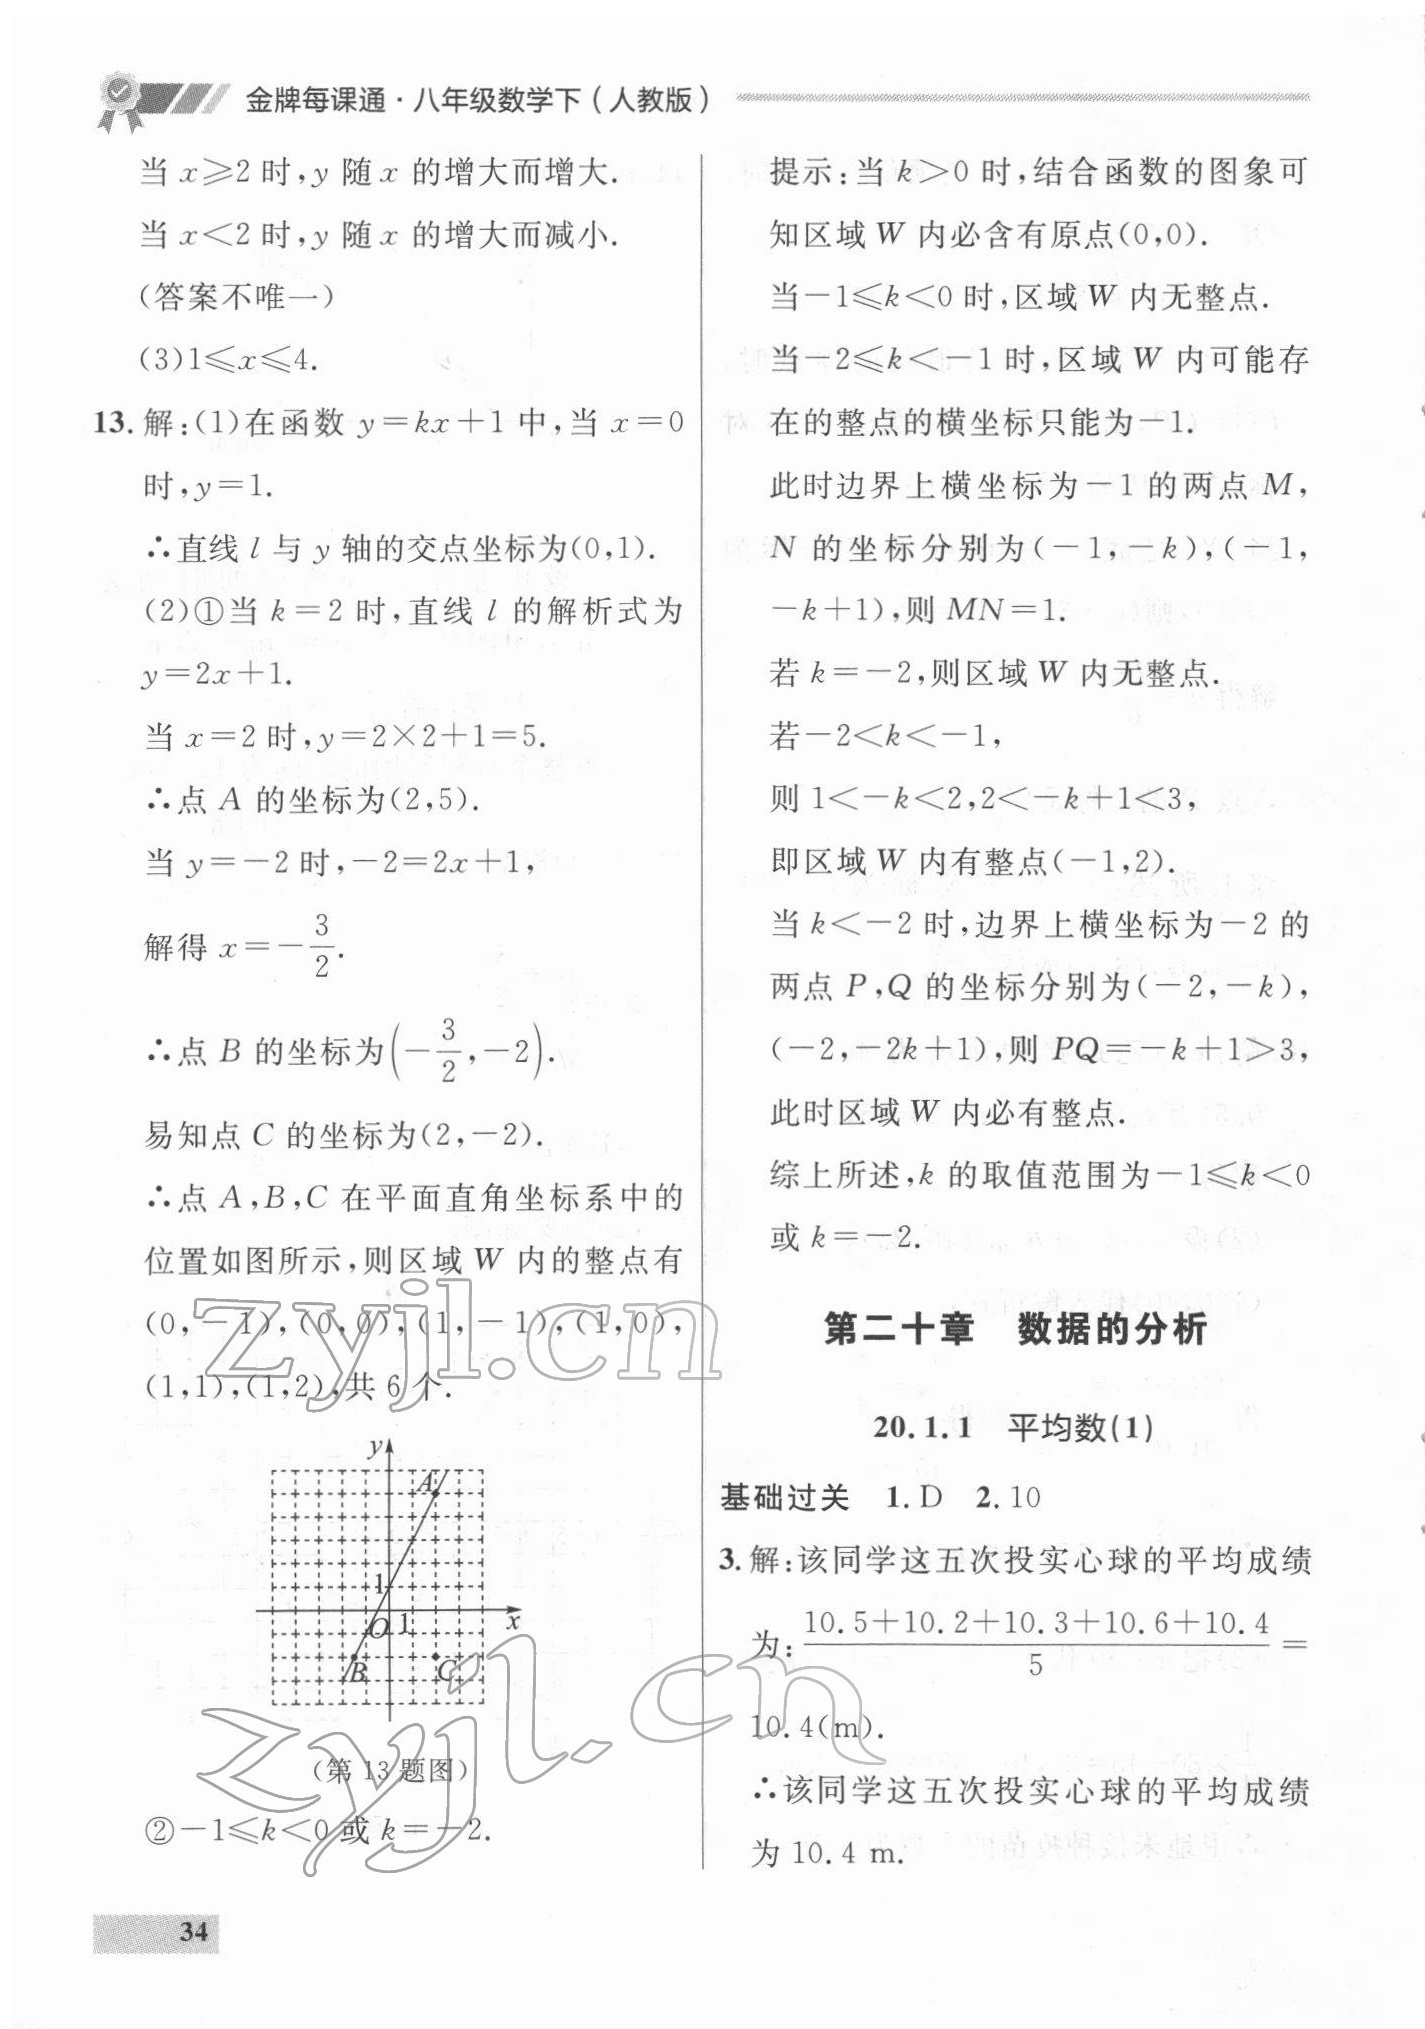 金牌每课通·八年级数学下(人教版)
当 x≥2 时,y 随 x 的增大而增大.
当 x<2 时,y 随 x 的增大而减小.
(答案不唯一)
(3)1≤x≤4.
13. 解:(1)在函数 y=kx+1 中,当 x=0
时,y=1.
∴直线 l 与 y 轴的交点坐标为(0,1).
(2)①当 k=2 时,直线 l 的解析式为
y=2x+1.
当 x=2 时,y=2×2+1=5.
∴点 A 的坐标为(2,5).
当 y=-2 时,-2=2x+1,
解得 x=-3/2.
∴点 B 的坐标为(-3/2,-2).
易知点 C 的坐标为(2,-2).
∴点 A,B,C 在平面直角坐标系中的
位置如图所示,则区域 W 内的整点有
(0,-1),(0,0),(1,-1),(1,0),
(1,1),(1,2),共 6 个.
y
A
1
O 1 x
B C
(第 13 题图)
②-1≤k<0 或 k=-2.
34
提示:当 k>0 时,结合函数的图象可
知区域 W 内必含有原点(0,0).
当-1≤k<0 时,区域 W 内无整点.
当-2≤k<-1 时,区域 W 内可能存
在的整点的横坐标只能为-1.
此时边界上横坐标为-1 的两点 M,
N 的坐标分别为(-1,-k),(-1,
-k+1),则 MN=1.
若 k=-2,则区域 W 内无整点.
若-2<k<-1,
则 1<-k<2,2<-k+1<3,
即区域 W 内有整点(-1,2).
当 k<-2 时,边界上横坐标为-2 的
两点 P,Q 的坐标分别为(-2,-k),
(-2,-2k+1),则 PQ=-k+1>3,
此时区域 W 内必有整点.
综上所述,k 的取值范围为-1≤k<0
或 k=-2.
第二十章 数据的分析
20.1.1 平均数(1)
基础过关 1.D 2.10
3. 解:该同学这五次投实心球的平均成绩
为:(10.5+10.2+10.3+10.6+10.4)/5=
10.4(m).
∴该同学这五次投实心球的平均成绩
为 10.4 m.
zyjl.cn
zyjl.cn